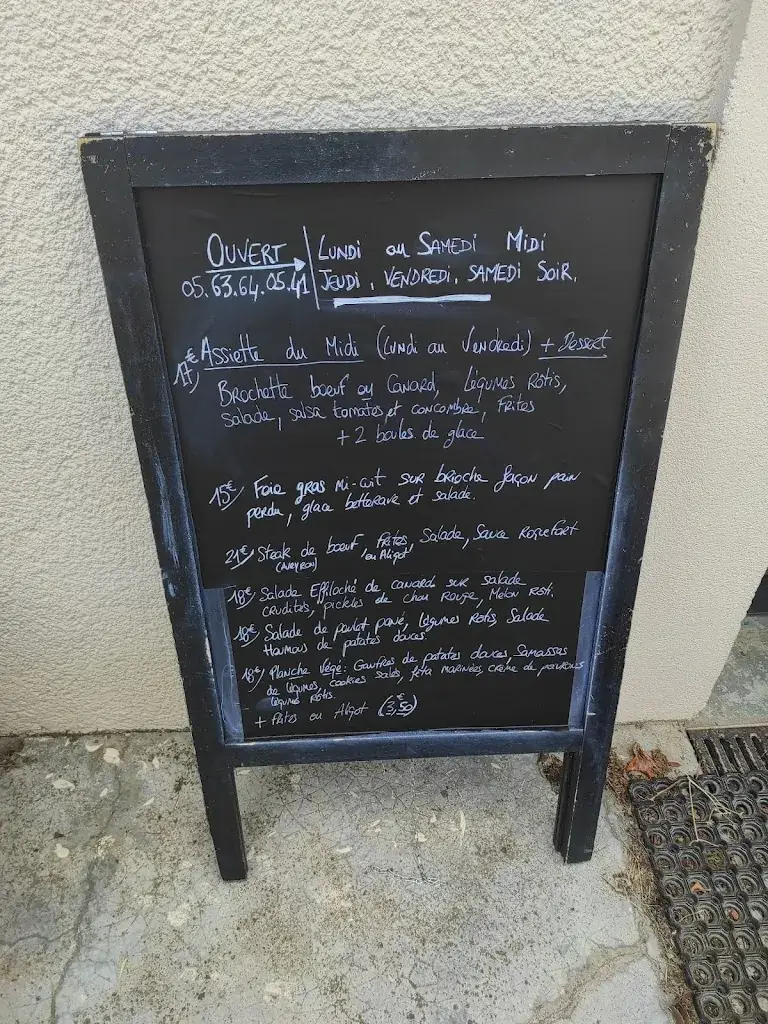 OUVERT
05.63.64.05.41
LUNDI au SAMEDI MIDI
JEUDI, VENDREDI, SAMEDI SOIR.
17€ Assiette du Midi (Lundi au Vendredi) + Dessert
Brochette boeuf ou Canard, Légumes Rôtis,
Salade, salsa tomates et concombre, Frites
+ 2 boules de glace
15€ Foie gras Mi-cuit sur brioche façon pain
perdu, glace betterave et salade.
21€ Steak de boeuf, Frites, Salade, Sauce Roquefort
(AVEYRON) ou Aligot
18€ Salade Effiloché de canard sur salade
crudités, pickles de chou Rouge, Melon rôti.
18€ Salade de poulet pané, Légumes Rotis, Salade
Houmous de patates douces.
18€ Planche Végé: Gauffres de patates douces, Samossas
de légumes, cookies salés, feta marinées, crème de poivrons
légumes Rôtis.
+ Frites ou Aligot (3,50€)